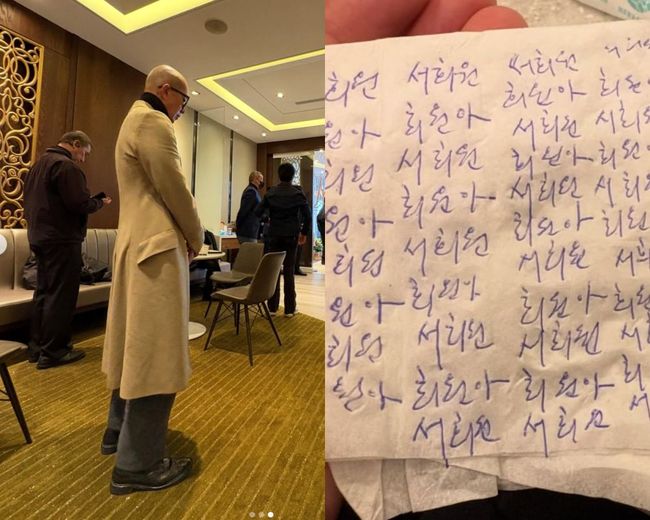 서희원
희원아 희원아
희원 서희원 서희원 서희원
원아 희원아 희원아 희원
희원 서희원 서희원 서희원
원아 희원아 희원아 희원
희원 서희원 서희원 서희
원아 희원아 희원아 희원
희원 서희원 서희원 서
원아 희원아 희원아 희
서희원 서희원 서